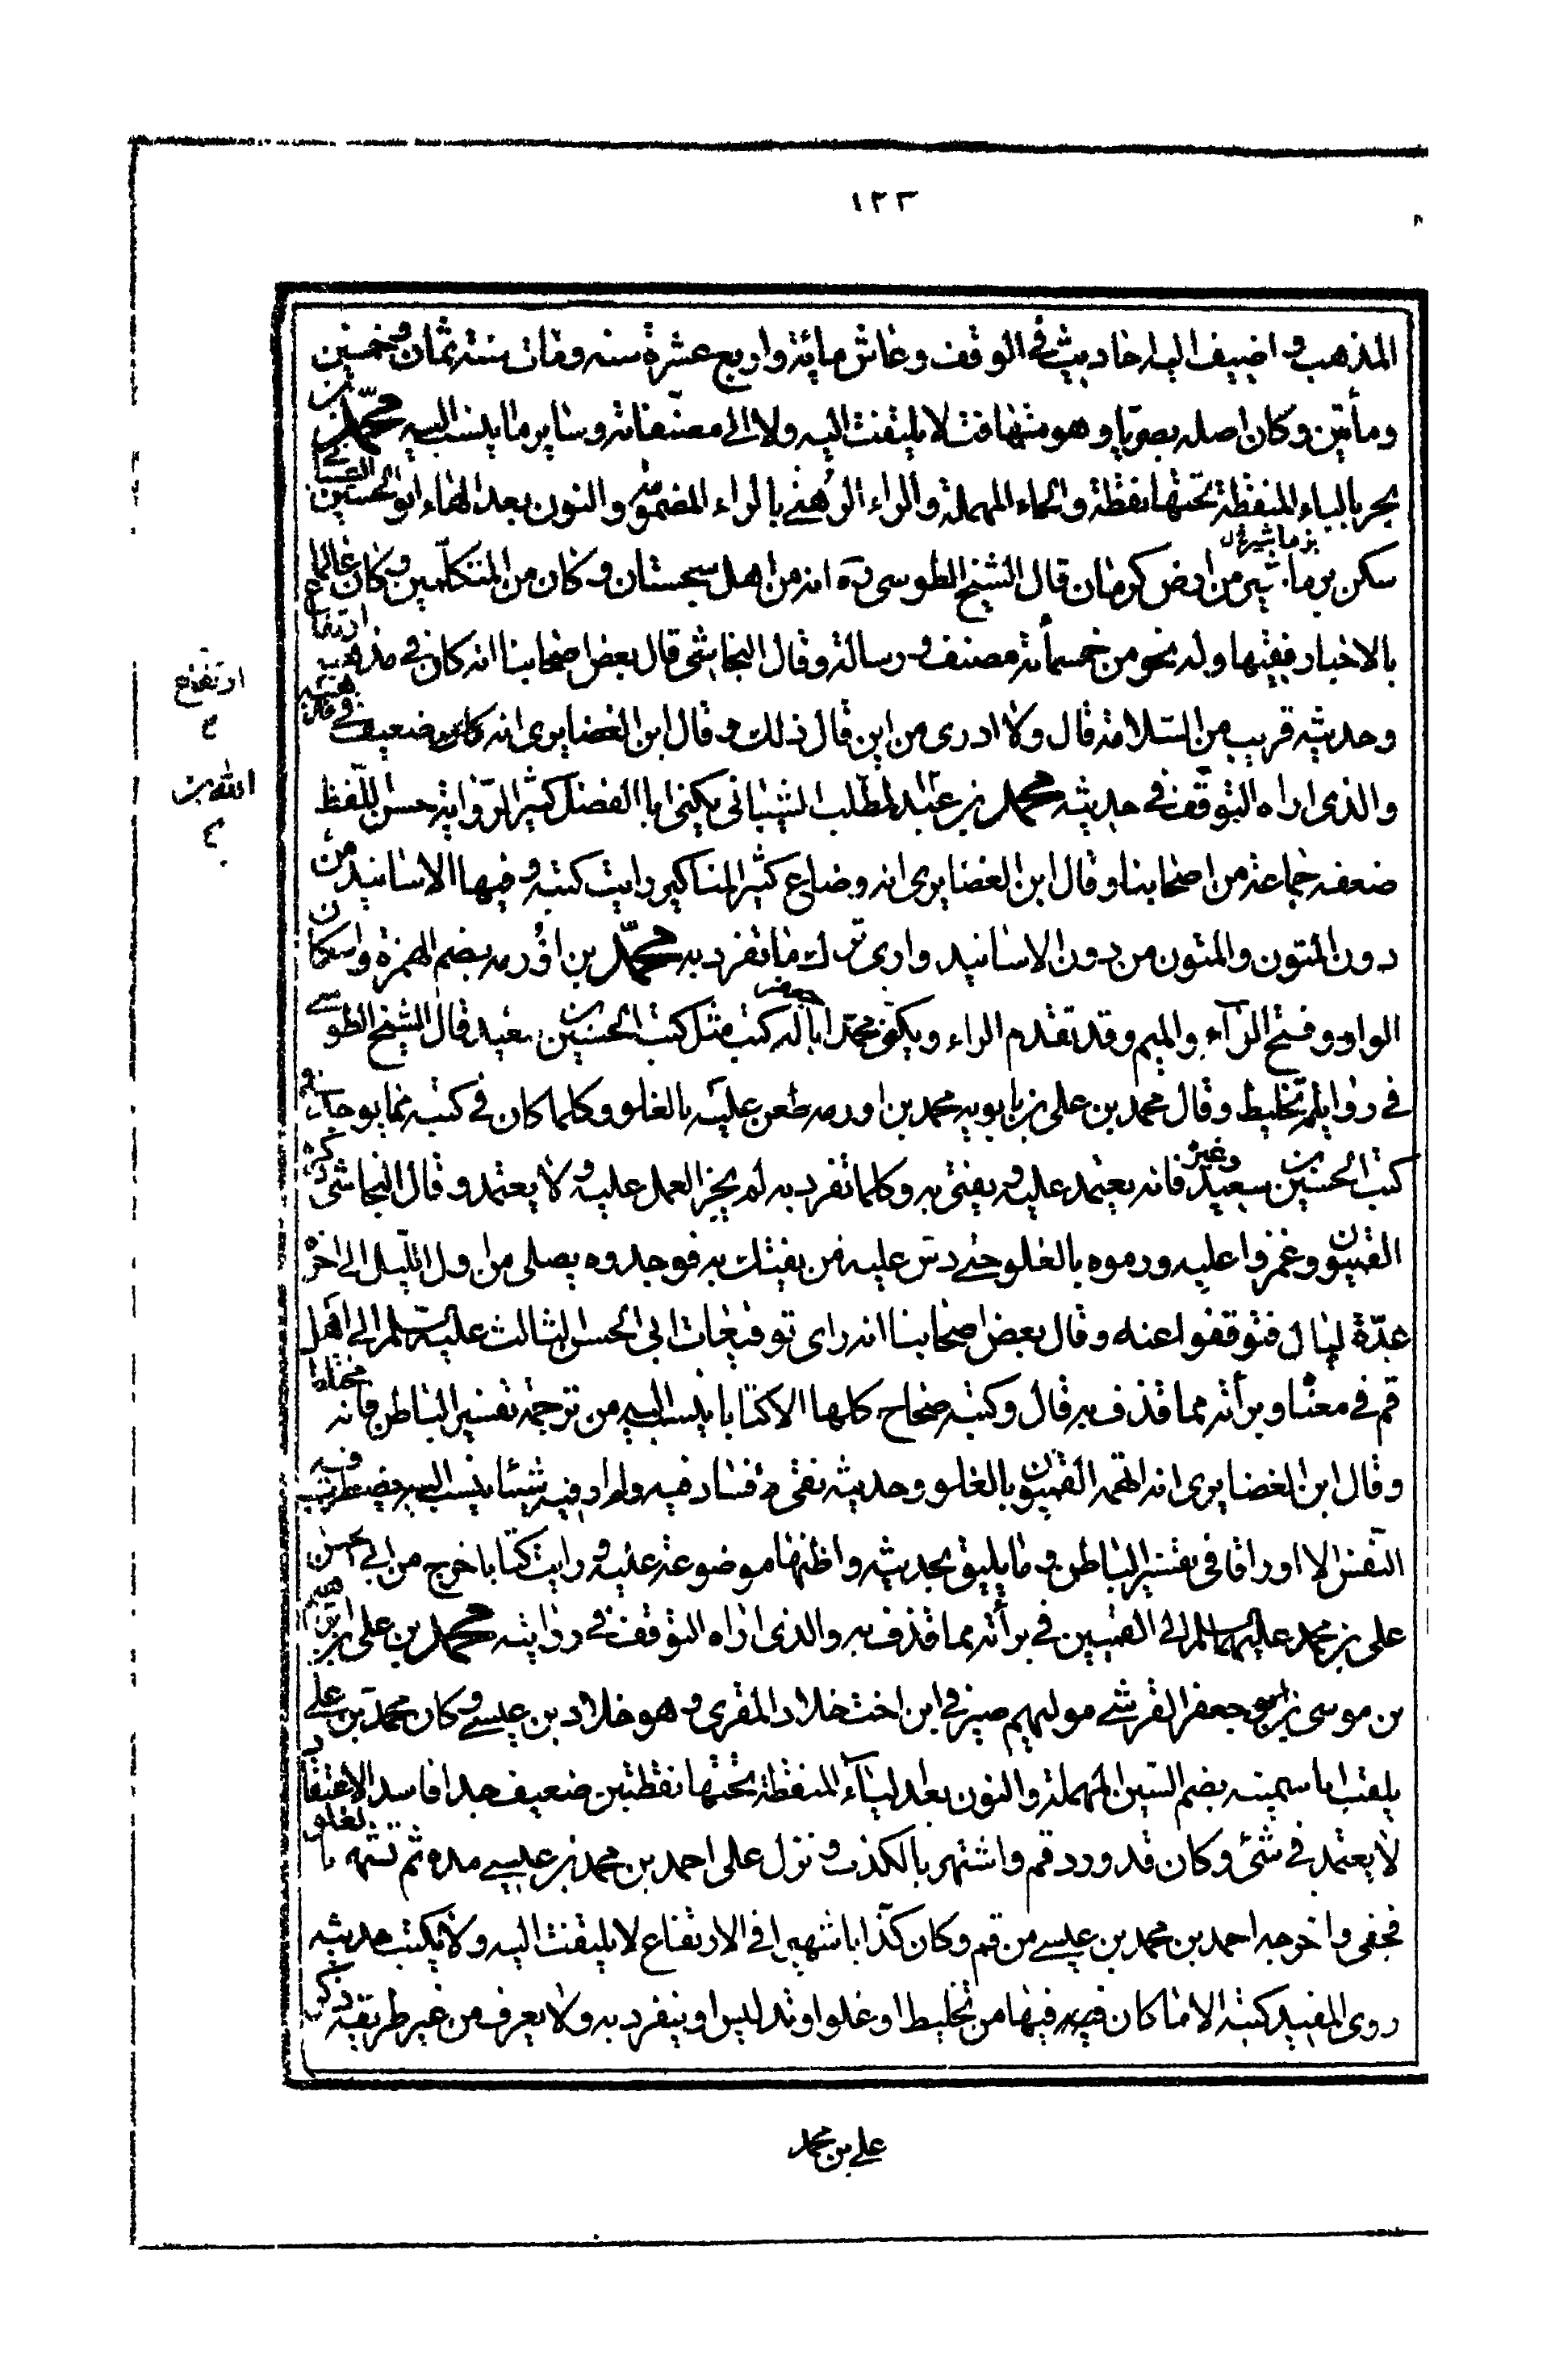 ١٢٣
المذهب و اضيف اليه احاديث في الوقف وعاش مائة واربع عشرة سنه ومات سنة ثمان وخمسين
ومأتين وكان اصله بصريا وهو متهافت لا يلتفت اليه ولا الى مصنفاته وسائر ما ينسب اليه محمد بن
بحر بالباء المنقطة تحتها نقطة والحاء المهملة والراء الرهنى بالراء المضمومة والنون بعد الهاء ابو الحسين الشيبانى
سكن نرماشير من ارض كرمان قال الشيخ الطوسى ره انه من اهل سجستان و كان من المتكلمين وكان عالما
بالاخبار فقيها وله نحو من خمسمأة مصنف و رسالة وقال النجاشى قال بعض اصحابنا انه كان فى مذهبه ارتفاع
وحديثه قريب من السلامة قال ولا ادرى من اين قال ذلك و قال ابن الغضايرى انه كان ضعيف فى
والذى اراه التوقف فى حديثه محمد بن عبد المطلب الشيبانى يكنى ابا الفضل كثير الرواية حسن اللفظ
ارتفاع
الله بن
ضعفه جماعة من اصحابنا وقال ابن الغضايرى انه وضاع كثير المناكير رايت كتبه و فيها الاسانيد من
دون المتون والمتون من دون الاسانيد وارى ترك ما تفرد به محمد بن اورمه بضم الهمزة واسكان
الواو وفتح الراء والميم وقد تقدم الراء ويكنى محمد ابا جعفر له كتب مثل كتب الحسين بن سعيد قال الشيخ الطوسى
فى رواياته تخليط وقال محمد بن على بن بابويه محمد بن اورمه طعن عليه بالغلو وكلما كان فى كتبه مما يوجد فى
كتب الحسين بن سعيد وغيره فانه يعتمد عليه و يفتى به وكلما تفرد به لم يجز العمل عليه و لا يعتمد وقال النجاشى ذكره
القميون وغمزوا عليه ورموه بالغلو حتى دس عليه من يفتك به فوجدوه يصلى من اول الليل الى اخره
عدة ليال فتوقفوا عنه وقال بعض اصحابنا انه راى توقيعات ابى الحسن الثالث عليه السلم الى اهل
قم فى معناه وبرأته مما قذف به قال وكتبه صحاح كلها الا كتابا ينسب اليه من ترجمة تفسير الباطن فانه مختلط
وقال ابن الغضايرى انه اتهمه القميون بالغلو وحديثه نقى لا فساد فيه ولم ار فيه شيئا ينسب اليه يضطرب فيه
النفس الا اوراقا فى تفسير الباطن و ما يليق بحديثه واظنها موضوعة عليه و رايت كتابا خرج من ابى الحسن
على بن محمد عليهما السلم الى القميين فى برأته مما قذف به والذى اراه التوقف فى روايته محمد بن على بن ابرهيم
بن موسى ابو جعفر القرشى موليهم صيرفى ابن اخت خلاد المقرى و هو خلاد بن عيسى و كان محمد بن على
يلقب ابا سمينه بضم السين المهملة والنون بعد الياء المنقطة تحتها نقطتين ضعيف جدا فاسد الاعتقاد
لا يعتمد فى شئ وكان قد ورد قم واشتهر بالكذب و نزل على احمد بن محمد بن عيسى مده ثم تشهر بالغلو
فجفى و اخرجه احمد بن محمد بن عيسى من قم وكان كذابا شهيرا فى الارتفاع لا يلتفت اليه ولا يكتب حديثه
روى المفيد كتبه الا ما كان فيها من تخليط او غلو او تدليس او ينفرد به ولا يعرف من غير طريقه ذكر
على بن محمد